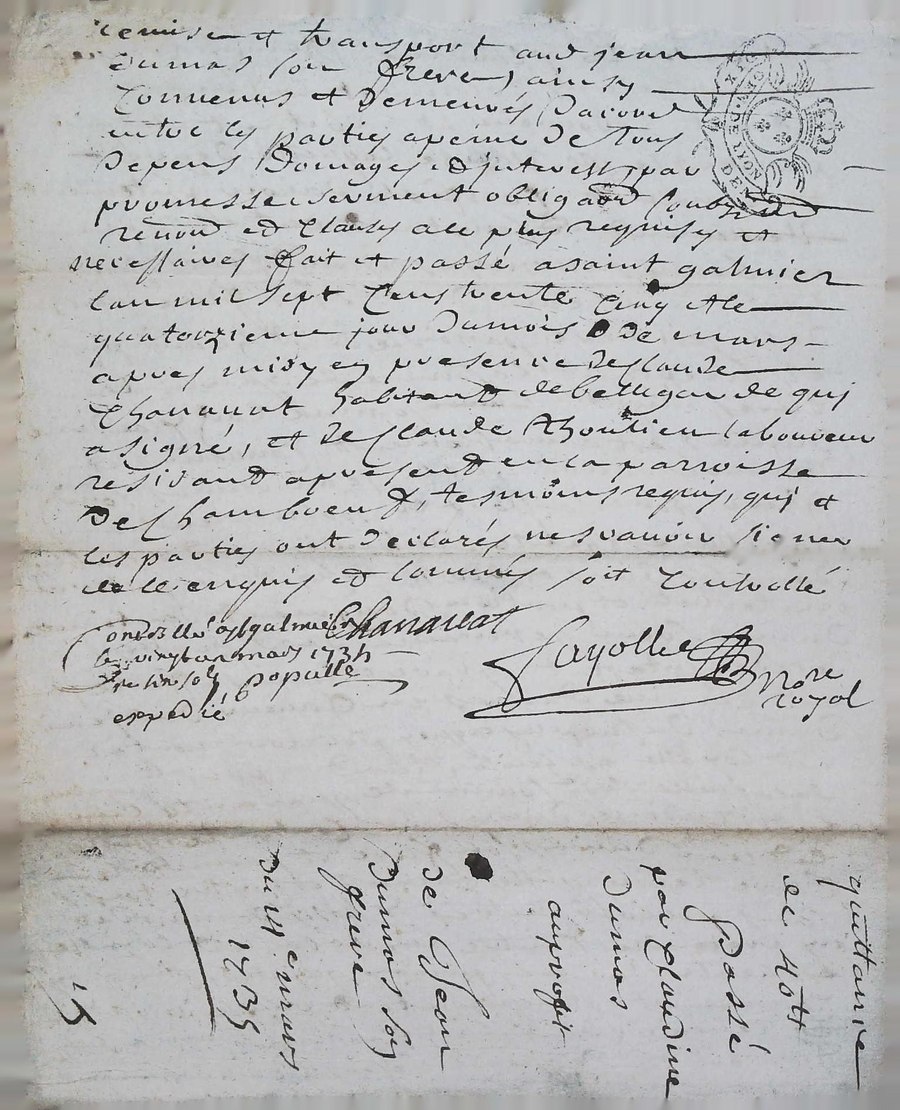 remise et transport aud jean
dumas son frere, ainsy
Convenus et Demeurés Dacord
entre les parties apeine de tous
Depens Domages et interest par
promesse serment obligaon soubz
renon et clauses ale plus requises et
necessaires fait et passé asaint galmier
lan mil sept Cens trente Cinq et le
quatorzieme jour dumois De mars
apres midy en presence de Claude
Chanavat habitant debellegarde qui
asigné, et de Claude Thoulieu laboureur
residant apresent en la parroisse
De Chamboeuf, tesmoins requis, qui et
les parties ont declarés ne scavoir signer
de ce enquis et sommés soit Controllé
Chanavat
Fayolle nore royal
Controllé a st galmier
le vingt un mars 1735
expedié
quittance
de 40tt
Passé
par Claudine
Dumas
auprofit
de Jean
Dumas son
frere
Du 14e mars
1735
15
GEN. DE LYON